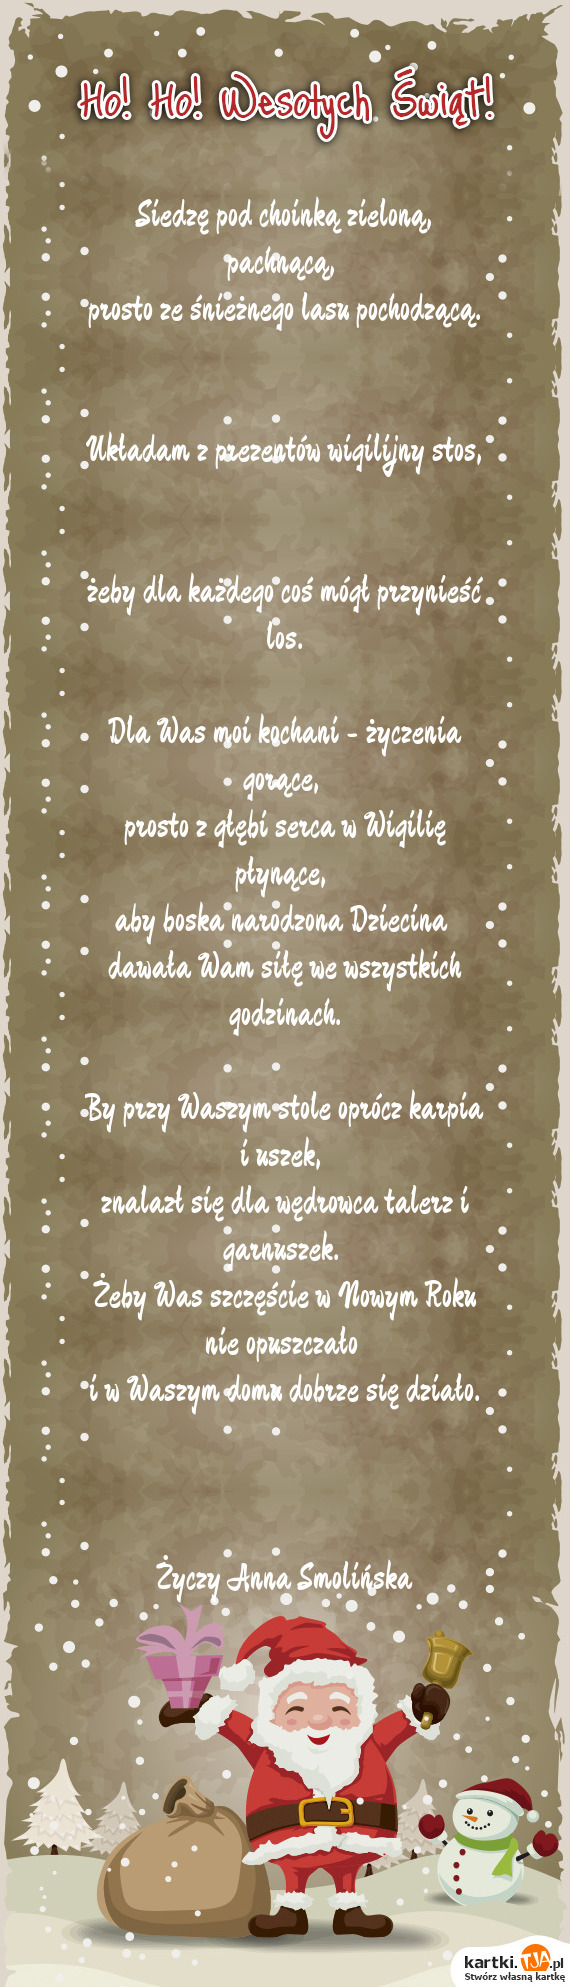 Ho! Ho! Wesołych Świąt!
Siedzę pod choinką zieloną,
pachnącą,
prosto ze śnieżnego lasu pochodzącą.
Układam z prezentów wigilijny stos,
żeby dla każdego coś mógł przynieść
los.
Dla Was moi kochani - życzenia
gorące,
prosto z głębi serca w Wigilię
płynące,
aby boska narodzona Dziecina
dawała Wam siłę we wszystkich
godzinach.
By przy Waszym stole oprócz karpia
i uszek,
znalazł się dla wędrowca talerz i
garnuszek.
Żeby Was szczęście w Nowym Roku
nie opuszczało
i w Waszym domu dobrze się działo.
Życzy Anna Smolińska
kartki.TJA.pl
Stwórz własną kartkę